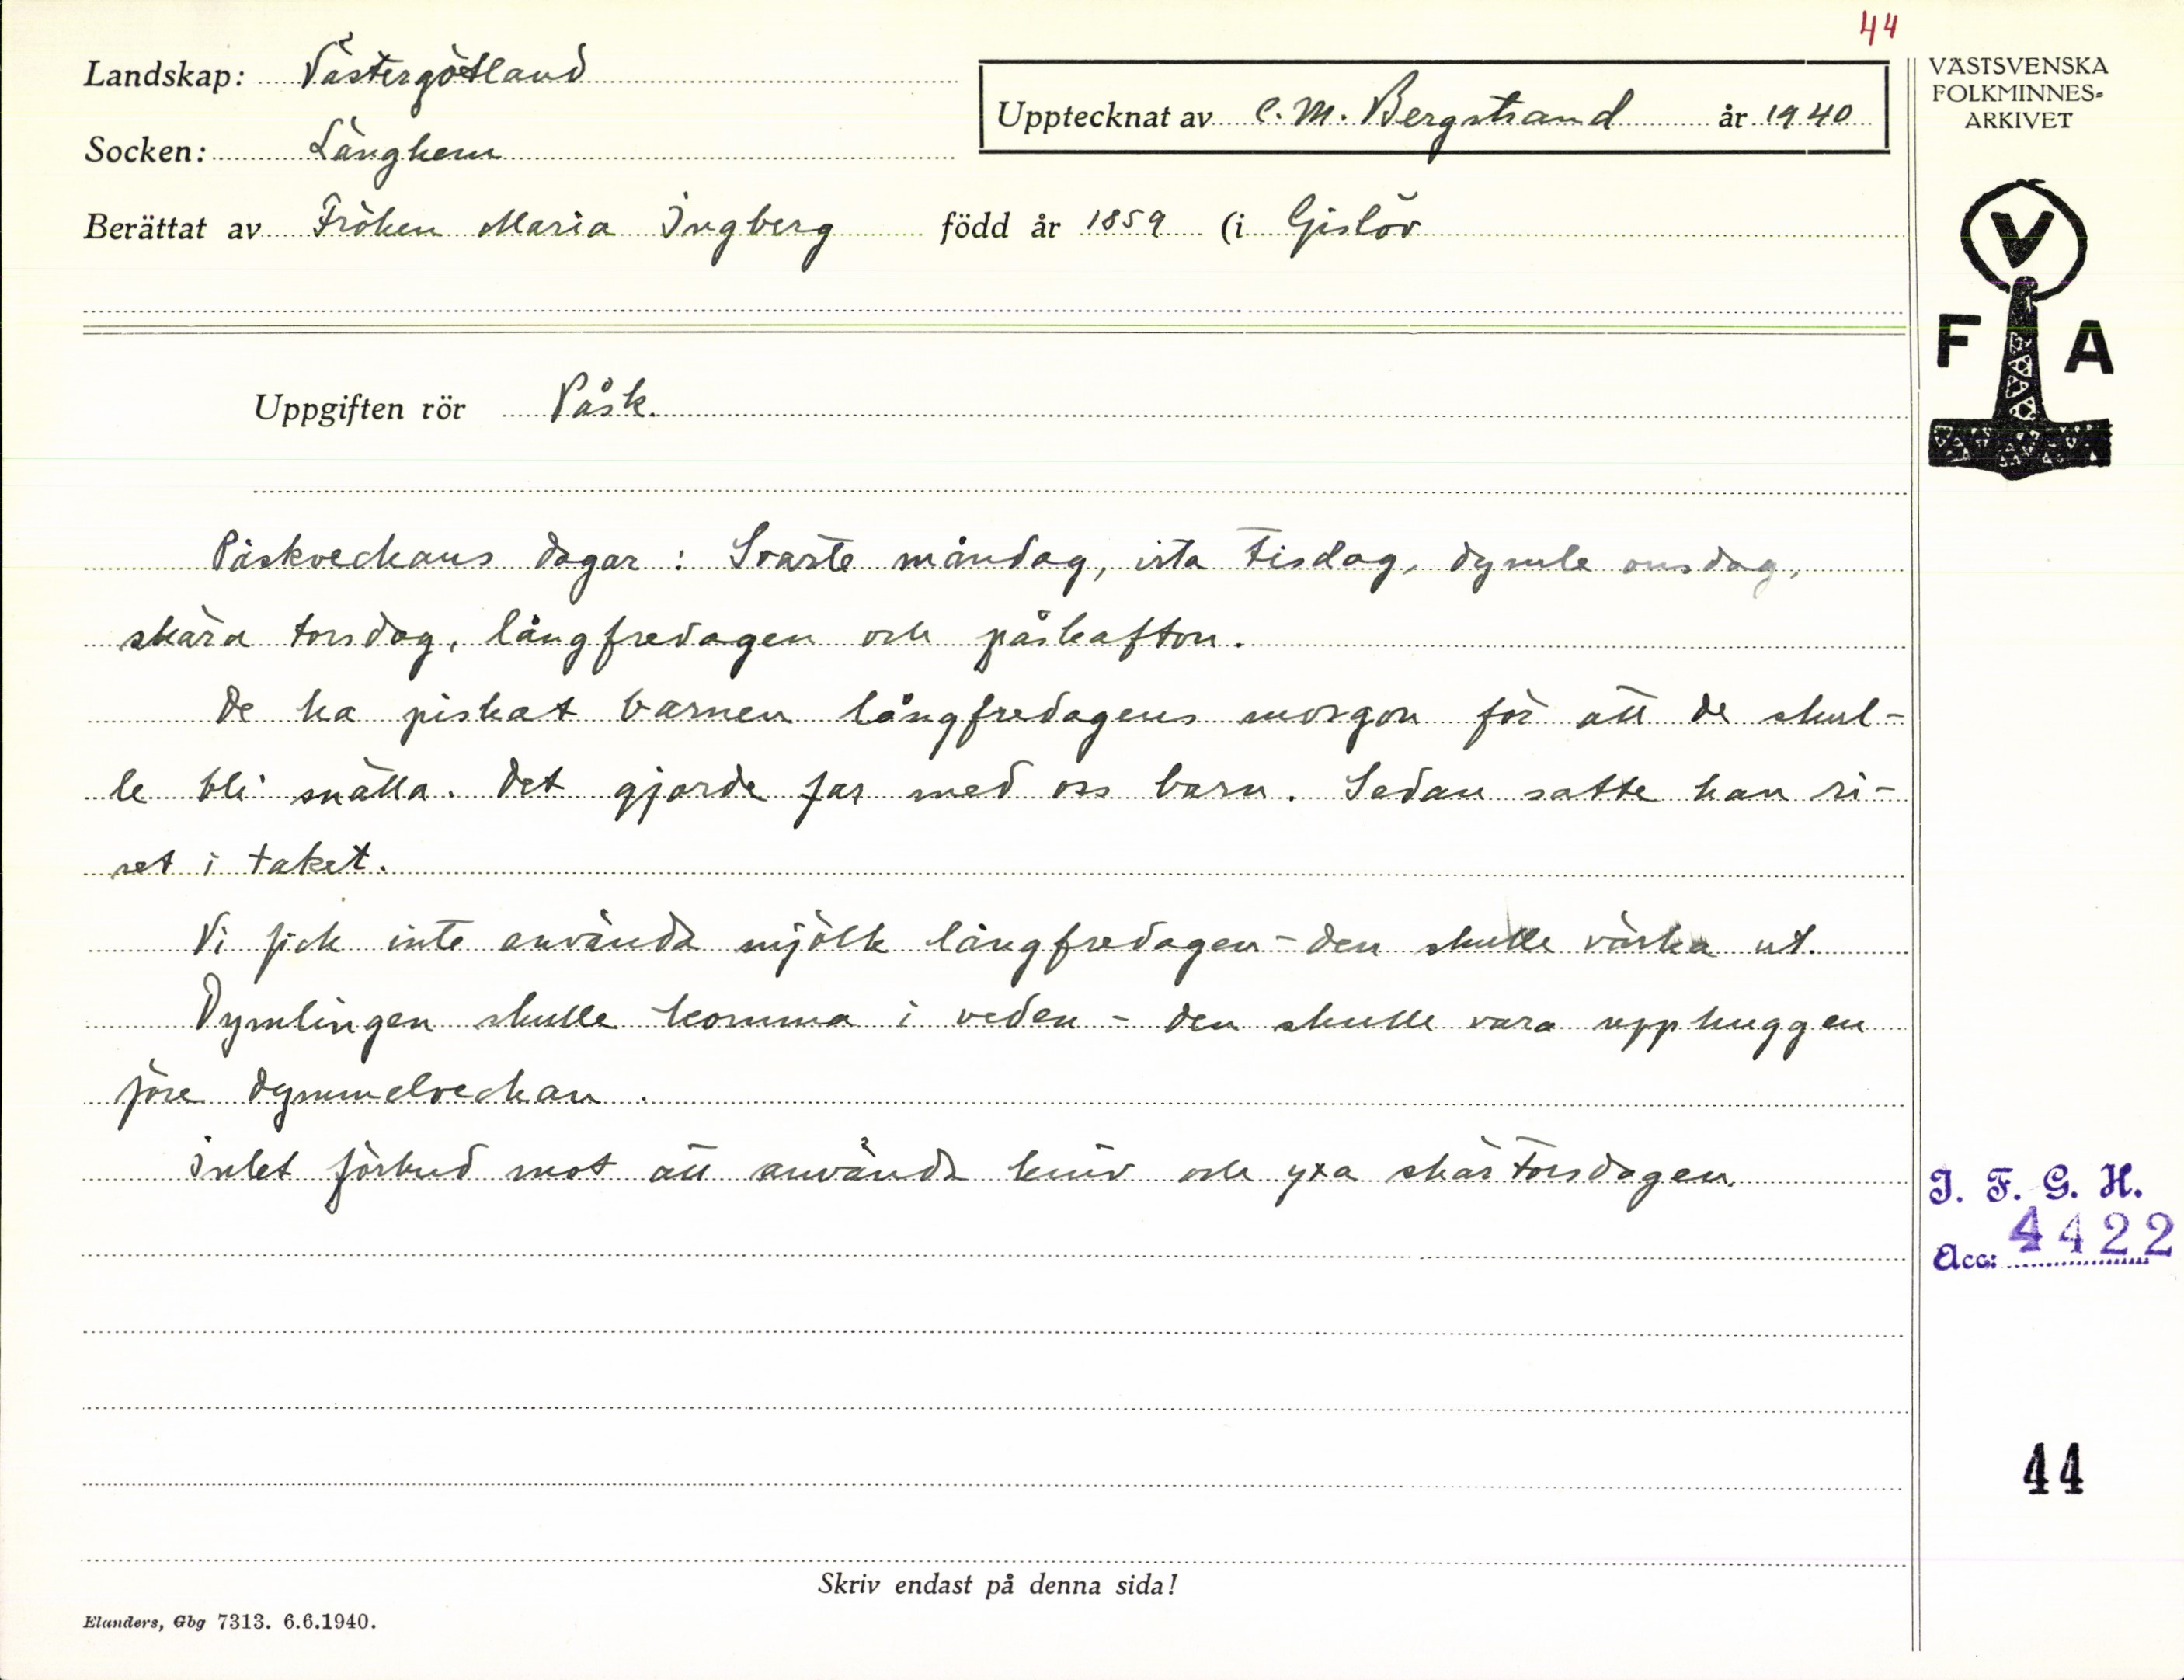 44
Landskap: Västergötland
Socken: Länghem
Upptecknat av C. M. Bergstrand år 1940
Berättat av Fröken Maria Ingberg född år 1859 (i Gislöv
VÄSTSVENSKA
FOLKMINNES-
ARKIVET
V
F A
Uppgiften rör Påsk.
Påskveckans dagar: Svarte måndag, ista tisdag, dymle onsdag,
skära torsdag, långfredagen och påskafton.
De ha piskat barnen långfredagens morgon för att de skul-
le bli snälla. Det gjorde far med oss barn. Sedan satte han ri-
set i taket.
Vi fick inte använda mjölk långfredagen - den skulle värka ut.
Dymlingen skulle komma i veden - den skulle vara upphuggen
före dymmelveckan.
Intet förbud mot att använda kniv och yxa skärtorsdagen.
I. F. G. H.
Acc: 4422
44
Skriv endast på denna sida!
Elanders, Gbg 7313. 6.6.1940.